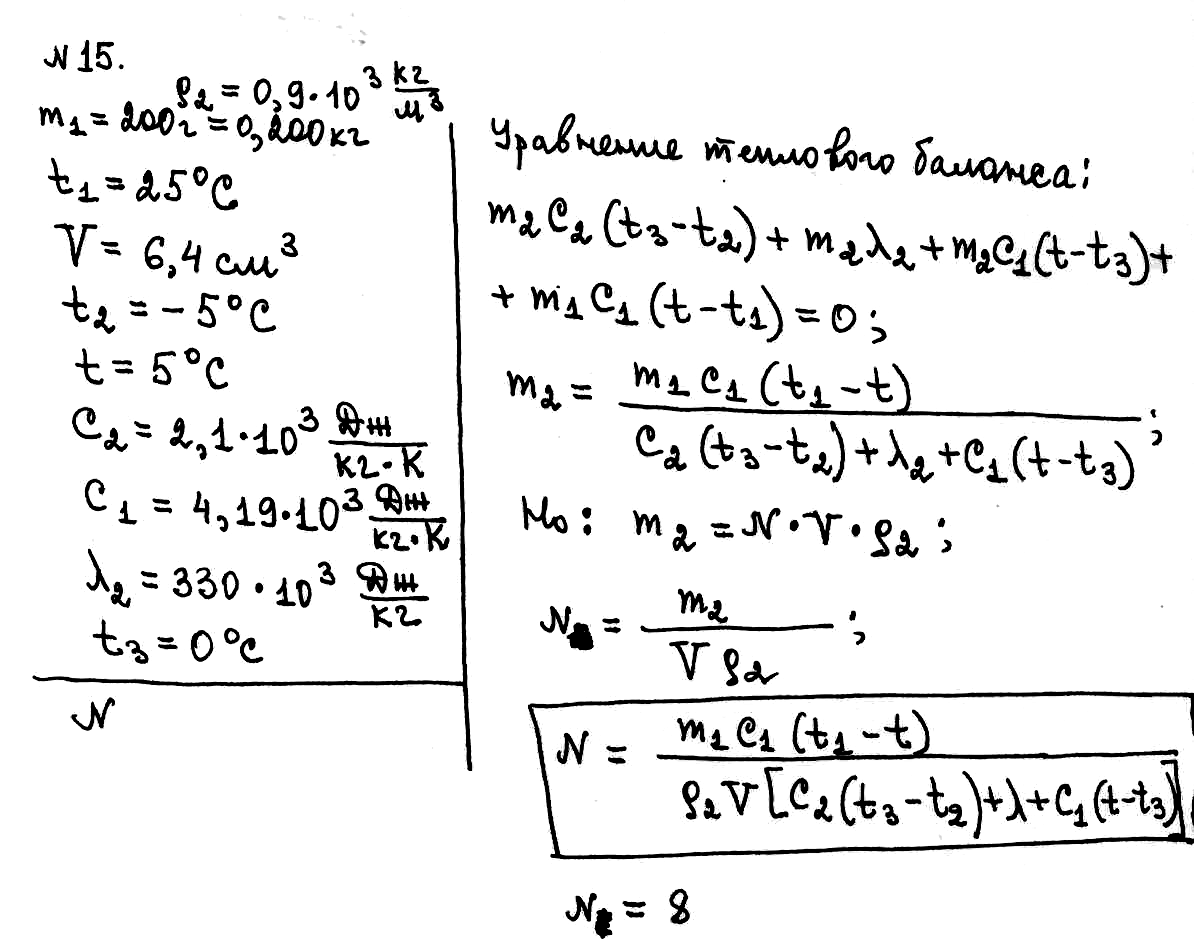 N 15.
ρ₂ = 0,9·10³ кг/м³
m₁ = 200г = 0,200кг
t₁ = 25°C
V = 6,4 см³
t₂ = -5°C
t = 5°C
C₂ = 2,1·10³ Дж/кг·К
C₁ = 4,19·10³ Дж/кг·К
λ₂ = 330·10³ Дж/кг
t₃ = 0°C
N
Уравнение теплового баланса:
m₂C₂(t₃-t₂) + m₂λ₂ + m₂C₁(t-t₃) +
+ m₁C₁(t-t₁) = 0;
m₂ = m₁C₁(t₁-t) / C₂(t₃-t₂)+λ₂+C₁(t-t₃);
Но: m₂ = N·V·ρ₂;
N = m₂ / Vρ₂;
N = m₁C₁(t₁-t) / ρ₂V[C₂(t₃-t₂)+λ+C₁(t-t₃)]
N = 8